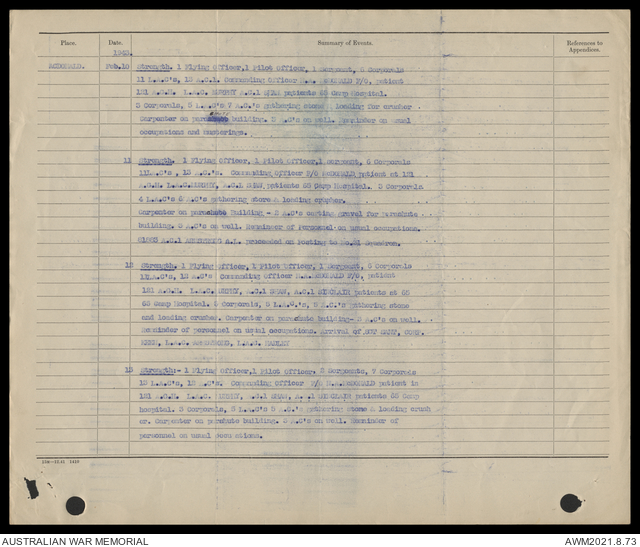 Place. Date. Summary of Events. References to Appendices.
1943.
McDONALD. Feb.10 Strength. 1 Flying Officer, 1 Pilot Officer, 1 Sergeant, 6 Corporals
11 L.A.C's, 13 A.C.1. Commanding Officer McDONALD F/O, patient
121 A.G.H. L.A.C. MURPHY A.C.1 patients 65 Camp Hospital.
3 Corporals, 5 L.A.C's 7 A.C.'s gathering stone & loading for crusher.
Carpenter on parachute building. 3 A.C's on well. Remainder on usual
occupations and musterings.
11 Strength. 1 Flying Officer, 1 Pilot Officer, 1 Sergeant, 6 Corporals
11L.A.C's, 13 A.C.'s. Commanding Officer F/O McDONALD patient at 121
A.G.H. L.A.C. MURPHY, A.C.1 SHAW patients 65 Camp Hospital. 3 Corporals
4 L.A.C's 5 A.C's gathering stone & loading crusher.
Carpenter on parachute Building - 3 A.C's carting gravel for parachute
building. 3 A.C's on well. Remainder of Personnel on usual occupations.
A.C.1 A.L. proceeded on Posting to No. Squadron.
12 Strength. 1 Flying Officer, 1 Pilot Officer, 1 Sergeant, 6 Corporals
11L.A.C's, 12 A.C's Commanding Officer McDONALD F/O, patient
121 A.G.H. L.A.C. MURPHY, A.C.1 SHAW, A.C.1 SINCLAIR patients at 65
65 Camp Hospital. 3 Corporals, 5 L.A.C.'s, 5 A.C.'s gathering stone
and loading crusher. Carpenter on parachute building- 3 A.C's on well.
Remainder of personnel on usual occupations. Arrival of CORP.
L.A.C. L.A.C.
13 Strength:- 1 Flying Officer, 1 Pilot Officer. 2 Sergeants, 7 Corporals
13 L.A.C's, 12 A.C's. Commanding Officer F/O McDONALD patient in
121 A.G.H. L.A.C. MURPHY, A.C.1 SHAW, A.C.1 SINCLAIR patients 65 Camp
hospital. 3 Corporals, 5 L.A.C's 5 A.C.'s gathering stone & loading crush
er. Carpenter on parachute building. 3 A.C's on well. Remainder of
personnel on usual occupations.
AUSTRALIAN WAR MEMORIAL AWM2021.8.73